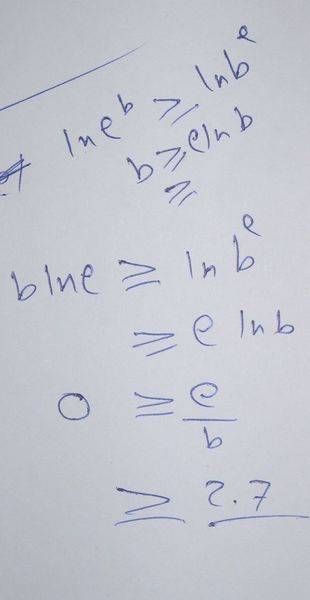 ln e^b ≥ ln b^e
b ≥ e ln b
≥
b ln e ≥ ln b^e
≥ e ln b
0 ≥ e/b
≥ 2.7